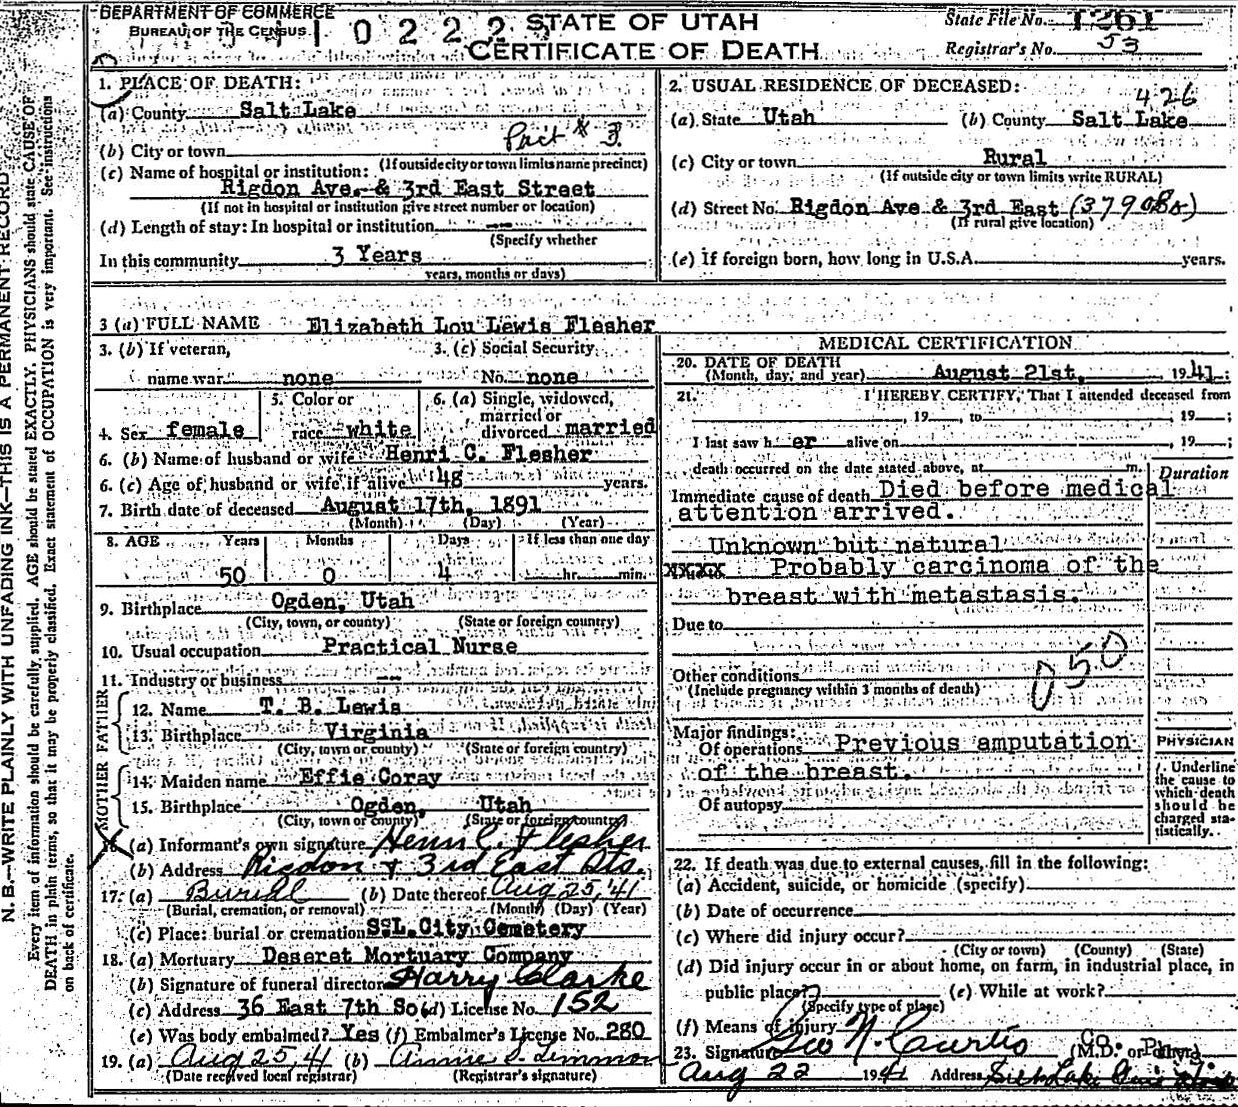 DEPARTMENT OF COMMERCE
BUREAU OF THE CENSUS
0 2 2 2
STATE OF UTAH
CERTIFICATE OF DEATH
State File No. 1261
Registrar's No. 53
1. PLACE OF DEATH:
(a) County Salt Lake
(b) City or town Pct # 3
(If outside city or town limits name precinct)
(c) Name of hospital or institution:
Rigdon Ave. & 3rd East Street
(If not in hospital or institution give street number or location)
(d) Length of stay: In hospital or institution --
(Specify whether
In this community 3 Years
years, months or days)
2. USUAL RESIDENCE OF DECEASED:
426
(a) State Utah (b) County Salt Lake
(c) City or town Rural
(If outside city or town limits write RURAL)
(d) Street No. Rigdon Ave & 3rd East
(If rural give location)
(e) If foreign born, how long in U.S.A. years.
3 (a) FULL NAME Elizabeth Lou Lewis Flesher
3. (b) If veteran, 3. (c) Social Security
name war none No. none
4. Sex female
5. Color or
race white
6. (a) Single, widowed,
married or
divorced married
6. (b) Name of husband or wife Henri C. Flesher
6. (c) Age of husband or wife if alive 48 years.
7. Birth date of deceased August 17th, 1891
(Month) (Day) (Year)
8. AGE Years Months Days If less than one day
50 0 4 hr. min.
9. Birthplace Ogden, Utah
(City, town, or county) (State or foreign country)
10. Usual occupation Practical Nurse
11. Industry or business --
FATHER
12. Name T. B. Lewis
13. Birthplace Virginia
(City, town or county) (State or foreign country)
MOTHER
14. Maiden name Effie Coray
15. Birthplace Ogden, Utah
(City, town or county) (State or foreign country)
16 (a) Informant's own signature Henri C. Flesher
(b) Address Rigdon & 3rd East Sts.
17. (a) Burial (b) Date thereof Aug 25, 41
(Burial, cremation, or removal) (Month) (Day) (Year)
(c) Place: burial or cremation S.L. City Cemetery
18. (a) Mortuary Deseret Mortuary Company
(b) Signature of funeral director Harry Clarke
(c) Address 36 East 7th So (d) License No. 152
(e) Was body embalmed? Yes (f) Embalmer's License No. 280
19. (a) Aug 25, 41 (b) Annie S. Lemmon
(Date received local registrar) (Registrar's signature)
MEDICAL CERTIFICATION
20. DATE OF DEATH
(Month, day, and year) August 21st, 1941;
21. I HEREBY CERTIFY, That I attended deceased from
, 19 , to , 19 ;
I last saw h er alive on , 19 ;
death occurred on the date stated above, at m.
Duration
Immediate cause of death Died before medical
attention arrived.
Unknown but natural
xxxx Probably carcinoma of the
breast with metastasis.
Due to
Other conditions
(Include pregnancy within 3 months of death)
050
Major findings:
Of operations Previous amputation
of the breast.
Of autopsy
PHYSICIAN
Underline
the cause to
which death
should be
charged sta-
tistically.
22. If death was due to external causes, fill in the following:
(a) Accident, suicide, or homicide (specify)
(b) Date of occurrence
(c) Where did injury occur?
(City or town) (County) (State)
(d) Did injury occur in or about home, on farm, in industrial place, in
public place? (e) While at work?
(Specify type of place)
(f) Means of injury
23. Signature Geo N. Curtis Co. Phy.
(M.D. or other)
Aug 22 1941 Address Salt Lake
N. B.—WRITE PLAINLY WITH UNFADING INK—THIS IS A PERMANENT RECORD
Every item of information should be carefully supplied. AGE should be stated EXACTLY. PHYSICIANS should state CAUSE OF
DEATH in plain terms, so that it may be properly classified. Exact statement of OCCUPATION is very important. See instructions
on back of certificate.